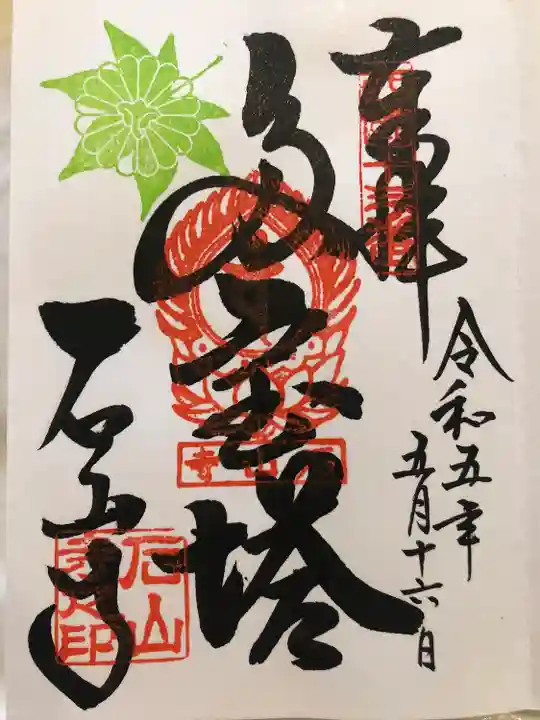 奉拝
令和五年
五月十六日
多宝塔
石山寺
石山寺
石山寺之印